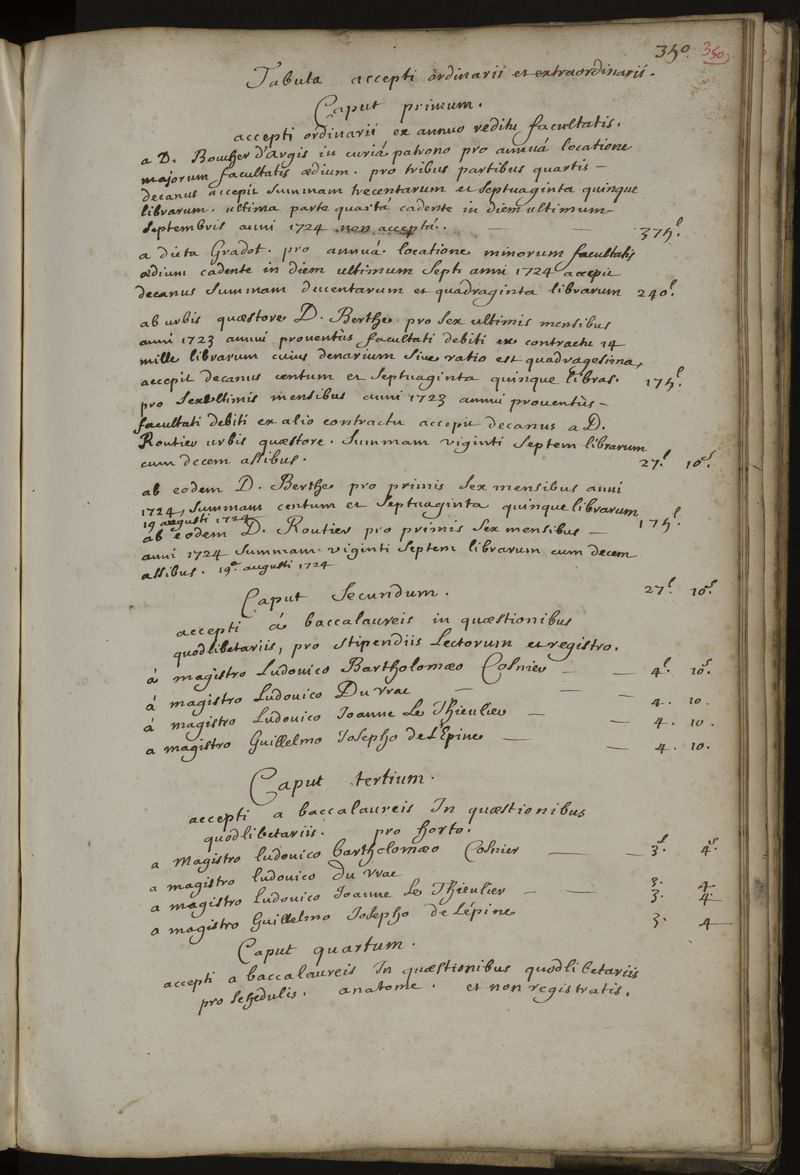 350. 350
Tabula accepti ordinarii et extraordinarii.
Caput primum.
accepti ordinarii ex annuo reditu facultatis.
a D. Boucher d'argis in curiâ patrono pro annuâ locatione
majorum facultatis ædium. pro tribus partibus quartis —
decanus accepit summam trecentarum et septuaginta quinque
librarum. ultima parte quartâ cadente in diem ultimum
septembris anni 1724 non acceptâ. — — 375.l
a dicta Gradot. pro annuâ locatione minorum facultatis
ædium cadente in diem ultimum Septi anni 1724 accepit
decanus summam ducentarum et quadraginta librarum 240.l
ab urbis quæstore D. Berthe pro sex ultimis mensibus
anni 1723 annui proventûs facultati debiti ex contractu 14
mille librarum cuius denarium sive ratio est quadragesima,
accepit decanus centum et septuaginta quinque libras. 175.l
pro sex ultimis mensibus anni 1723 annui proventûs —
facultati debiti ex alio contractu accepit decanus a D.
Routier urbis quæstore. summam viginti septem librarum
cum decem assibus. 27.l 10.s
ab eodem D. Berthe pro primis sex mensibus anni
1724, summam centum et septuaginta quinque librarum 175.l
19 augusti 1724
ab eodem D. Routier pro primis sex mensibus —
anni 1724 summam viginti septem librarum cum decem
assibus. 19.a augusti 1724 27.l 10.s
Caput secundum.
accepti á baccalaureis in quæstionibus
quodlibetariis, pro stipendiis Lectorum et registro.
á magistro Ludovico Bartholomæo Cosnier — — 4.l 10.s
á magistro Ludovico Du vrac — — — 4. 10.
á magistro Ludovico Joanne Le Thieulier — — 4. 10.
a magistro Guillelmo Josepho de L'Épine — — 4. 10.
Caput tertium.
accepti a baccalaureis In quæstionibus
quodlibetariis. pro horto.
a Magistro ludovico bartholomæo Cosnier — — 3.l 4.s
a magistro ludovico Du vrac 3. 4
a magistro Ludovico Joanne Le Thieulier — — 3. 4
a magistro Guillelmo Josepho de Lépine 3. 4
Caput quartum.
accepti a baccalaureis In quæstionibus quodlibetariis
pro schedulis. anatome. et non registratis.